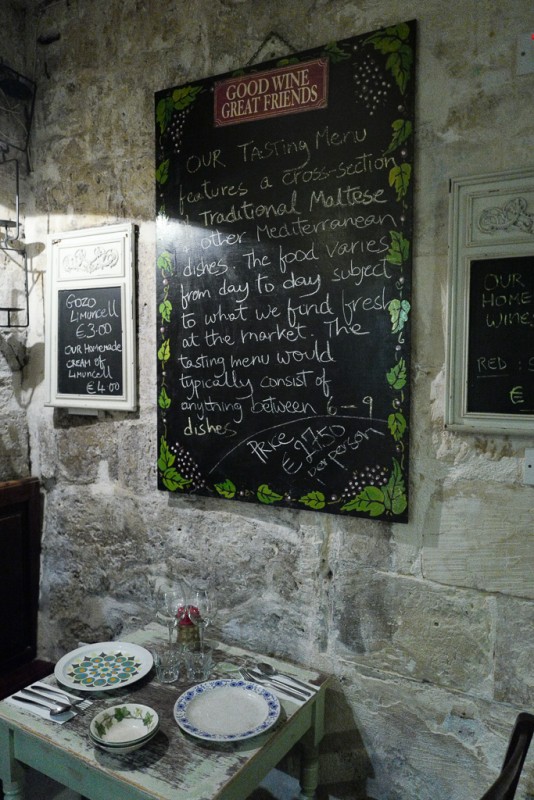 GOOD WINE
GREAT FRIENDS
OUR Tasting Menu
features a cross-section
Traditional Maltese
other Mediterranean
dishes. The food varies
from day to day subject
to what we find fresh
at the market. The
tasting menu would
typically consist of
anything between 6-9
dishes
Price
€27.50
per person
GOZO
LIMUNCELL
€3.00
OUR HOMEMADE
CREAM OF
LIMUNCELL
€4.00
OUR
HOME
WINE
RED :
€